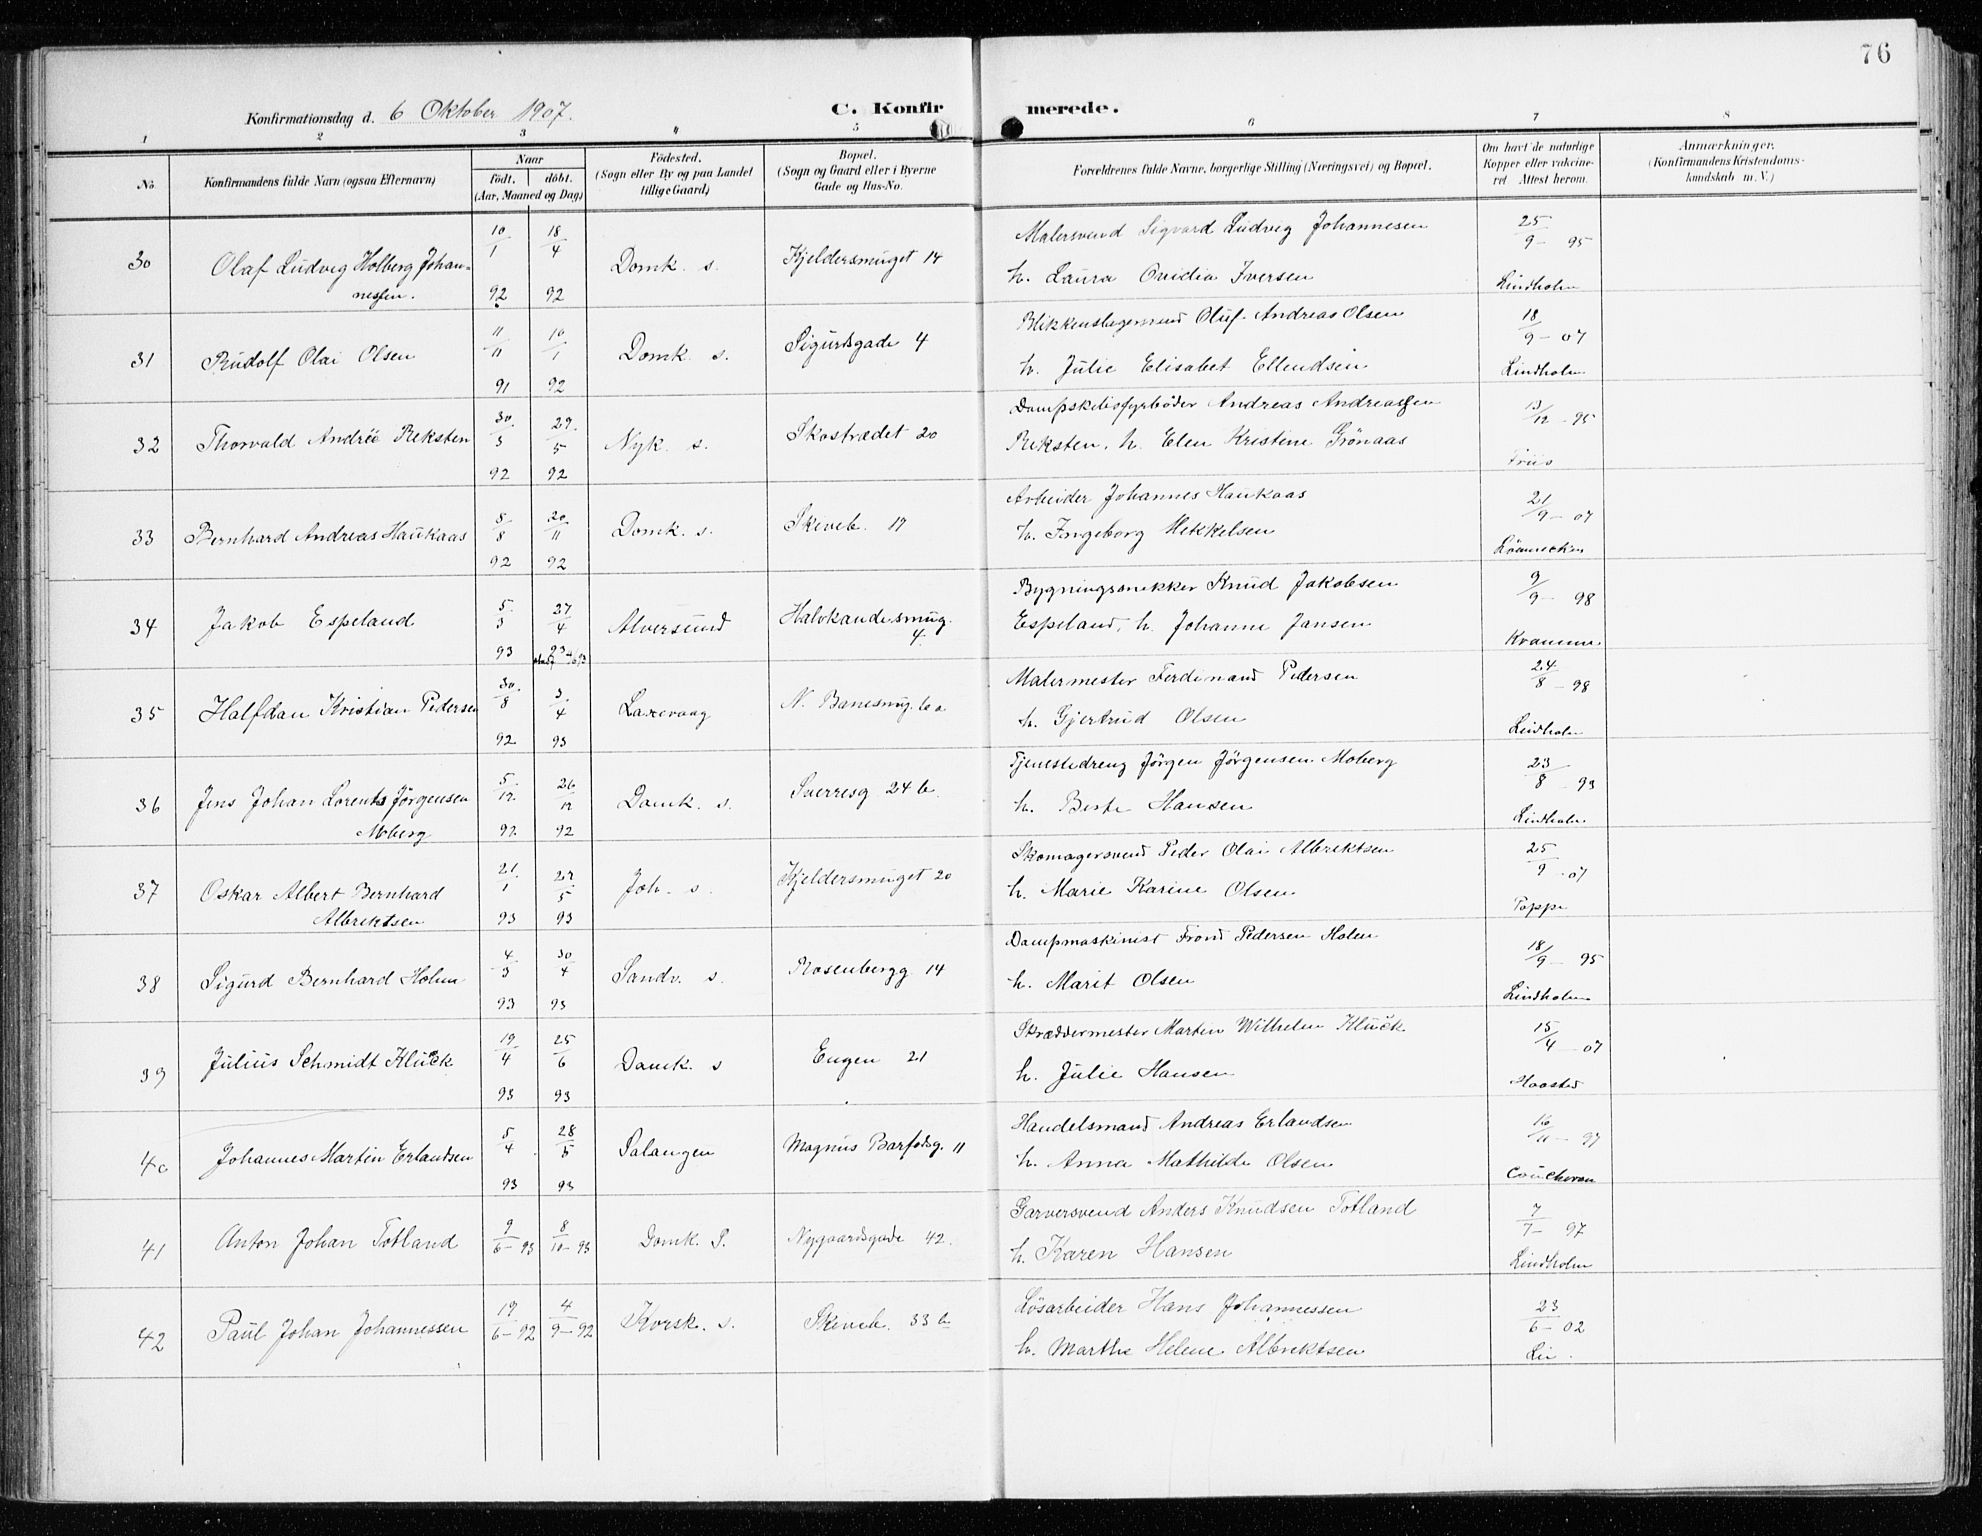 76
Konfirmationsdag d. 6 Oktober 1907.
C. Konfirmerede.
1 2 3 4 5 6 7 8
No. Konfirmandens fulde Navn (ogsaa Efternavn) Naar født. døbt. (Aar, Maaned og Dag) Födested. (Sogn eller By og paa Landet tillige Gaard) Bopæl. (Sogn og Gaard eller i Byerne Gade og Hus-No. Forældrenes fulde Navne, borgerlige Stilling (Næringsvei) og Bopæl. Om havt de naturlige Kopper eller vakcineret. Attest herom. Anmærkninger. (Konfirmandens Kristendomskundskab m. V.)
30 Olaf Ludvig Holberg Johannessen. 10/1 92 18/4 92 Domk. s. Kjeldersmuget 14 Malersvend Sigvard Ludvig Johannesen
h. Laura Ovidia Iversen 25/9 - 95 Lindholm
31 Rudolf Olai Olsen 11/11 91 10/1 92 Domk. s. Sigurdsgade 4 Blikkenslagersvend Oluf Andreas Olsen
h. Julie Elisabet Ellendsen 18/9 - 07 Lindholm
32 Thorvald Andrée Reksten 30/3 92 29/5 92 Nyk. s. Skostrædet 20 Dampskibsfyrbøder Andreas Andreassen
Reksten, h. Elen Kristine Grönaas 13/12 - 95 Friis
33 Bernhard Andreas Haukaas 5/8 92 20/11 92 Domk. s. Skeveb. 17 Arbeider Johannes Haukaas
h. Ingeborg Mikkelsen 21/9 - 07 Lönnecken
34 Jakob Espeland 5/3 93 27/4 Alversund Halvkandesmug. 4. Bygningssnekker Knud Jakobsen
Espeland, h. Johanne Jansen 9/9 - 98 Kvamme
35 Halfdan Kristian Pedersen 30/8 92 3/4 93 Laxevaag N. Banesmug. 6a Malermester Ferdinand Pedersen
h. Gjertrud Olsen 24/8 - 98 Lindholm
36 Jens Johan Lorents Jörgensen Moberg 5/12 92 26/12 92 Domk. s. Sverresg 24 b. Tjenestedreng Jörgen Jörgensen Moberg
h. Berte Hansen 23/8 - 93 Lindholm
37 Oskar Albert Bernhard Albrektsen 21/1 93 22/5 93 Joh. s. Kjeldersmuget 20 Skomagersvend Peder Olai Albrektsen
h. Marie Karine Olsen 25/9 - 07 Poppe
38 Sigurd Bernhard Holm 4/3 93 30/4 93 Sandv. s. Rosenbergg 14 Dampmaskinist Trond Pedersen Holm
h. Marit Olsen 18/9 - 95 Lindholm
39 Julius Schmidt Kluck 19/4 93 25/6 93 Domk. s Engen 21 Skræddermester Marten Wilhelm Kluck
h. Julie Hansen 15/4 - 07 Haasted
40 Johannes Martin Erlandsen 5/4 93 28/5 93 Salangen Magnus Barfodsg. 11 Handelsmand Andreas Erlandsen
h. Anna Mathilde Olsen 16/11 - 97 Coucheron
41 Anton Johan Totland 9/6 - 93 8/10 - 93 Domk. S. Nygaardsgade 42. Garversvend Anders Knudsen Totland
h. Karen Hansen 7/7 - 97 Lindholm
42 Paul Johan Johannessen 19/6 - 92 4/9 - 92 Korsk. s. Skeveb. 33 b Lösarbeider Hans Johannessen
h. Marthe Helene Albrektsen 23/6 - 02 Lie.